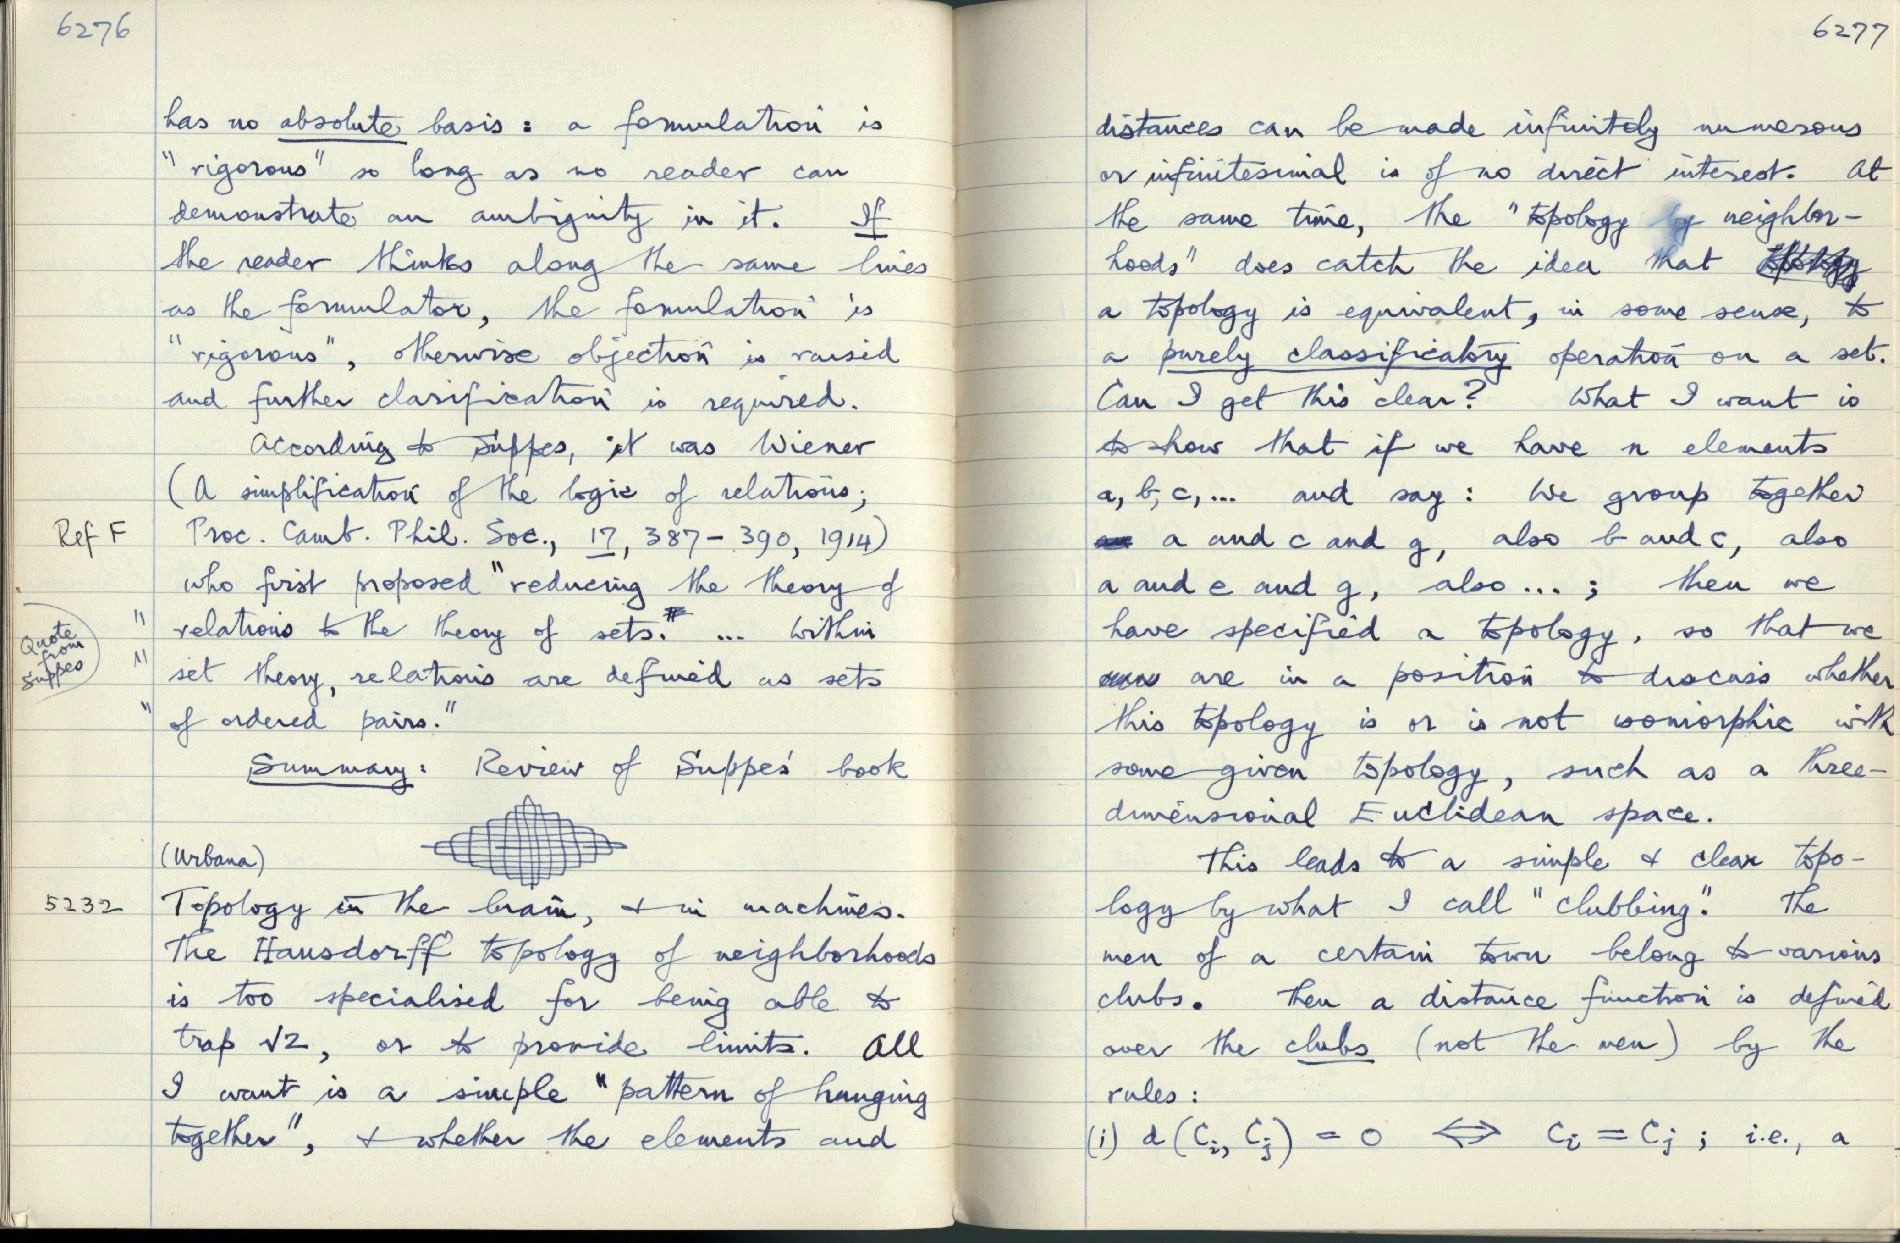 6276
has no absolute basis: a formulation is
"rigorous" so long as no reader can
demonstrate an ambiguity in it. If
the reader thinks along the same lines
as the formulator, the formulation is
"rigorous", otherwise objection is raised
and further clarification is required.
According to Suppes, it was Wiener
(A simplification of the logic of relations;
Ref F Proc. Camb. Phil. Soc., 17, 387-390, 1914)
who first proposed "reducing the theory of
" relations to the theory of sets. ... Within
Quote from Suppes
" set theory, relations are defined as sets
" of ordered pairs."
Summary: Review of Suppes' book
(Urbana)
5232 Topology in the brain, & in machines.
The Hausdorff topology of neighborhoods
is too specialised for being able to
trap √2, or to provide limits. All
I want is a simple "pattern of hanging
together", & whether the elements and
6277
distances can be made infinitely numerous
or infinitesimal is of no direct interest. At
the same time, the "topology by neighbor-
hoods" does catch the idea that topology
a topology is equivalent, in some sense, to
a purely classificatory operation on a set.
Can I get this clear? What I want is
to show that if we have n elements
a, b, c, ... and say: We group together
a and c and g, also b and c, also
a and e and g, also ... ; then we
have specified a topology, so that we
are in a position to discuss whether
this topology is or is not isomorphic with
some given topology, such as a three-
dimensional Euclidean space.
This leads to a simple & clear topo-
logy by what I call "clubbing". The
men of a certain town belong to various
clubs. Then a distance function is defined
over the clubs (not the men) by the
rules:
(i) d(Ci, Cj) = 0 ⟺ Ci = Cj ; i.e., a